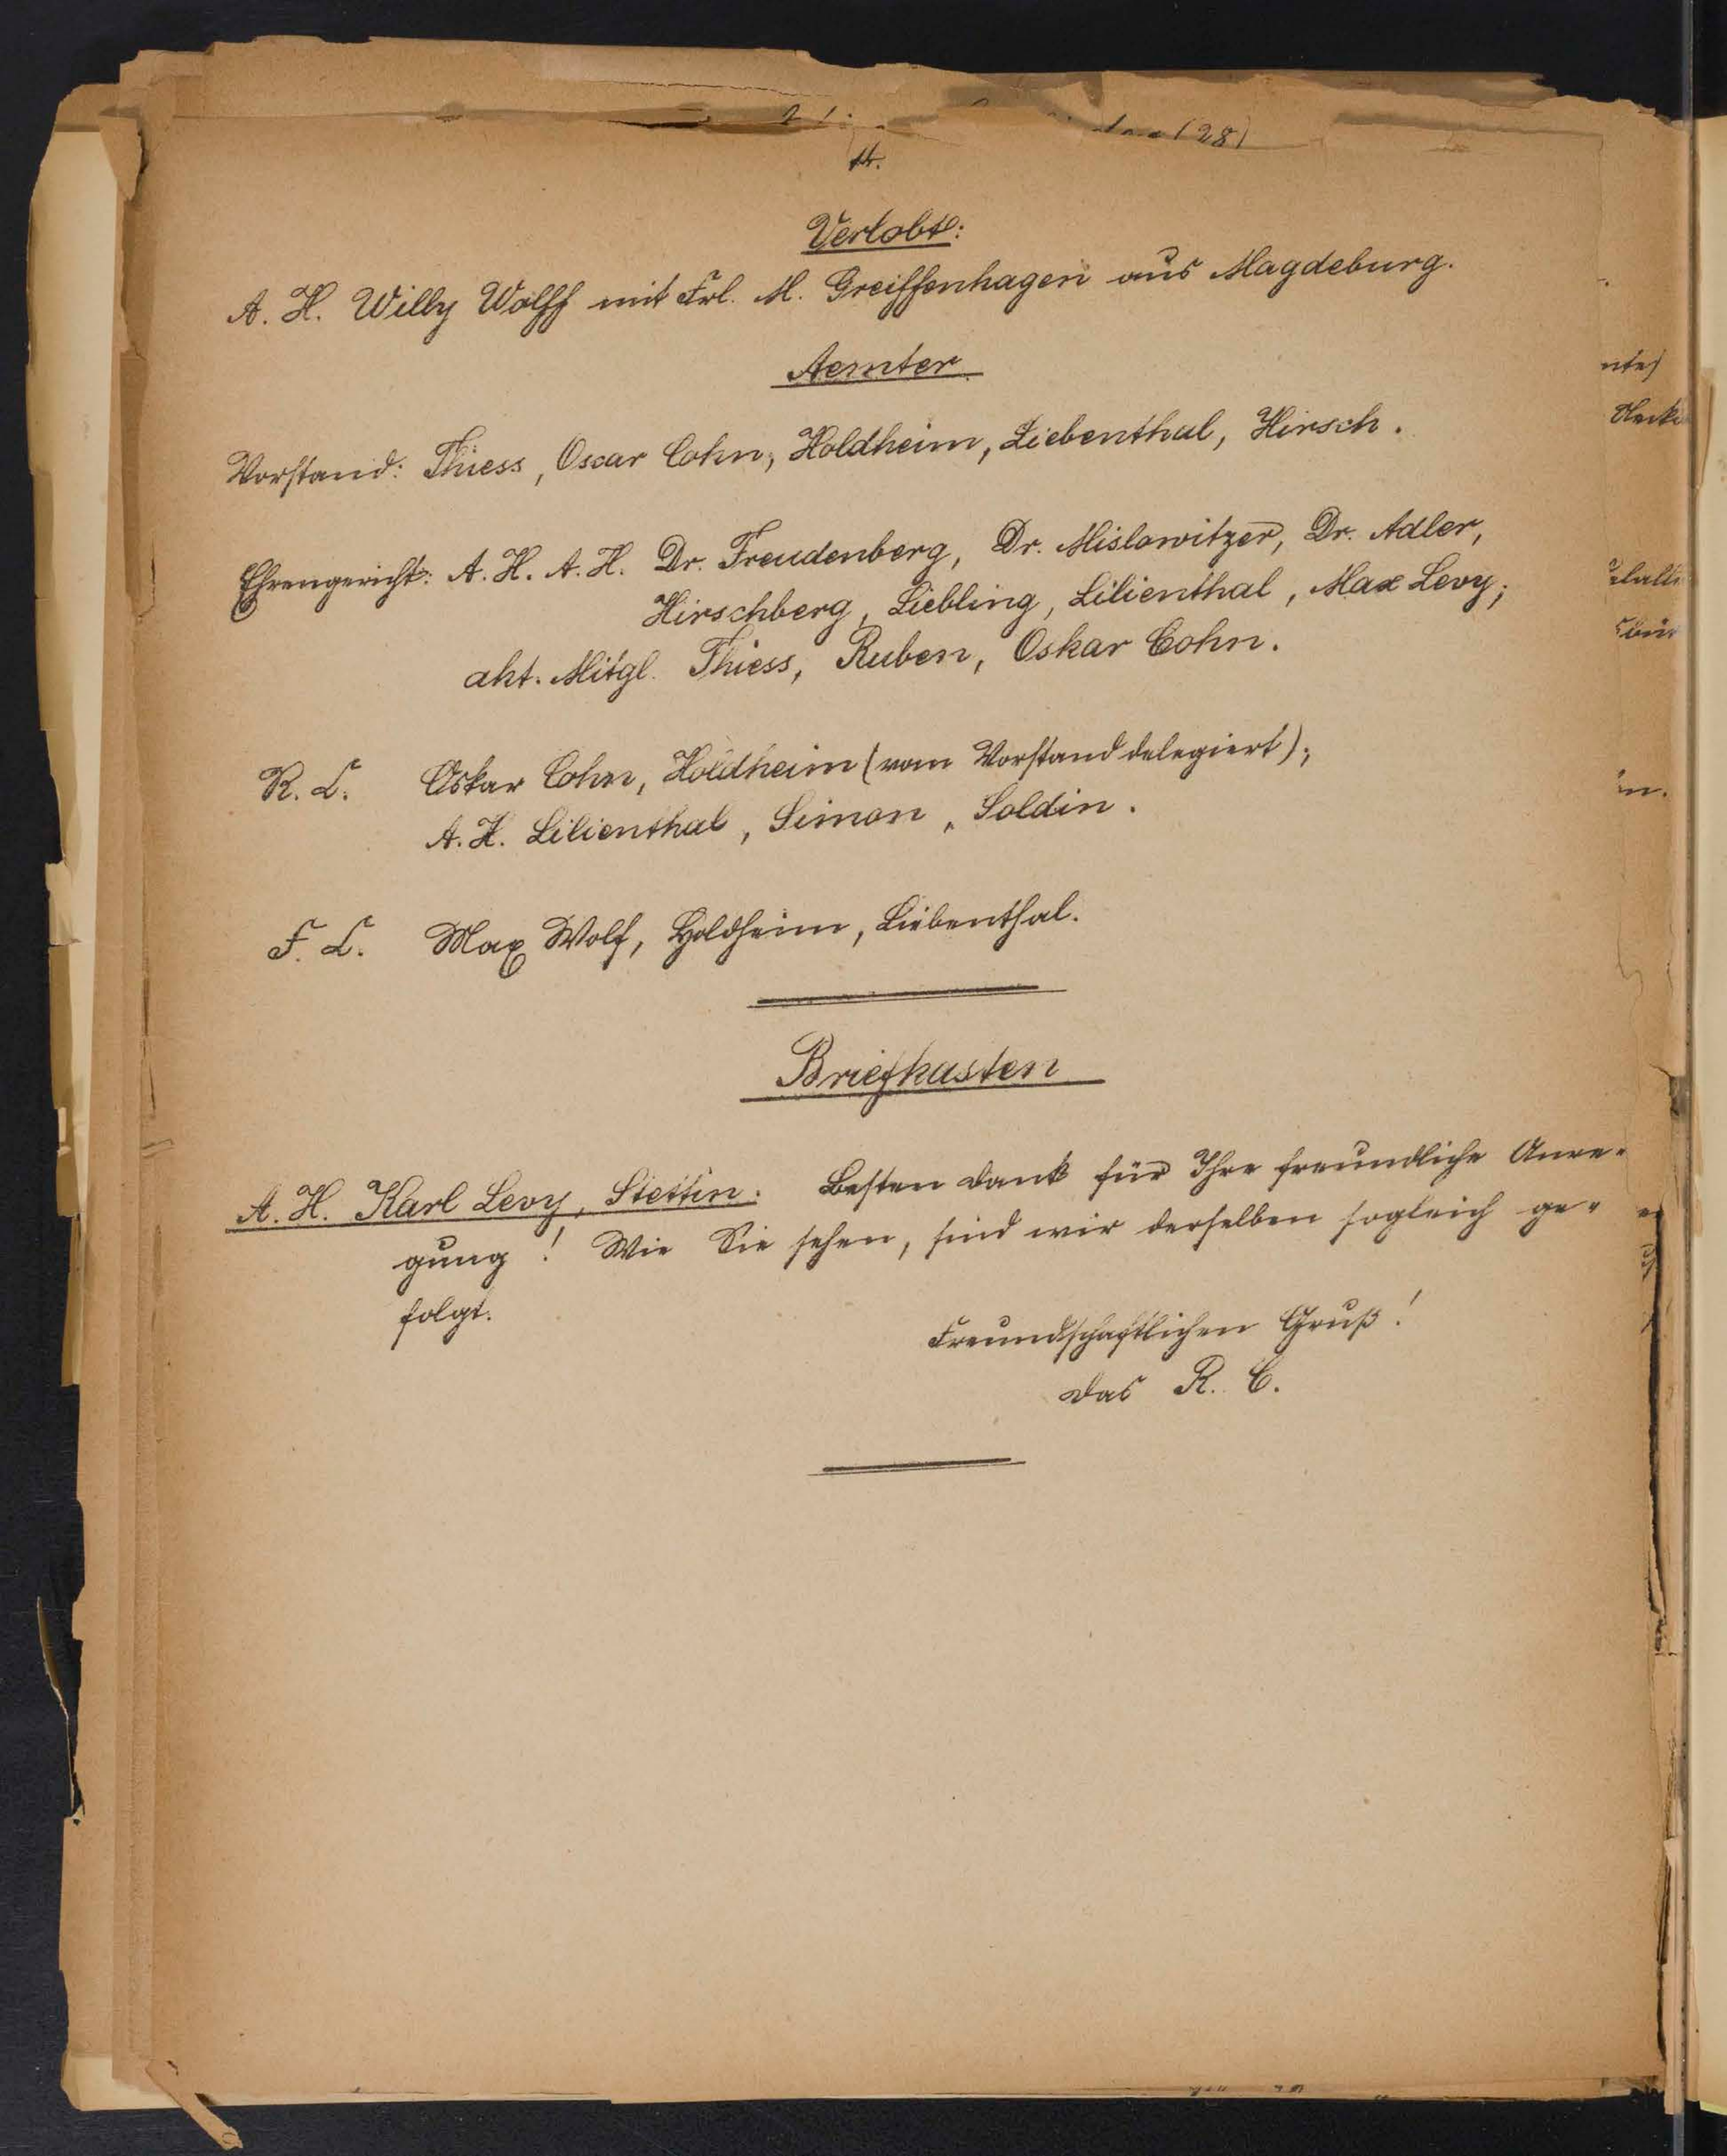 (28)
14.
Verlobt:
A. H. Willy Wolff mit Frl. M. Greiffenhagen aus Magdeburg.
Aemter
Vorstand: Thiess, Oscar Cohn, Holdheim, Liebenthal, Hirsch.
Ehrengericht: A. H. A. H. Dr. Freudenberg, Dr. Mislowitzer, Dr. Adler,
Hirschberg, Liebling, Lilienthal, Max Levy;
akt. Mitgl. Thiess, Ruben, Oskar Cohn.
R. C. Oskar Cohn, Holdheim (vom Vorstand delegiert);
A. H. Lilienthal, Simon, Soldin.
F. C. Max Wolf, Holdheim, Liebenthal.
Briefkasten
A. H. Karl Levy, Stettin: Besten Dank für Ihre freundliche Anre-
gung! Wie Sie sehen, sind wir derselben sogleich ge-
folgt.
Freundschaftlichen Gruß!
Das R. C.